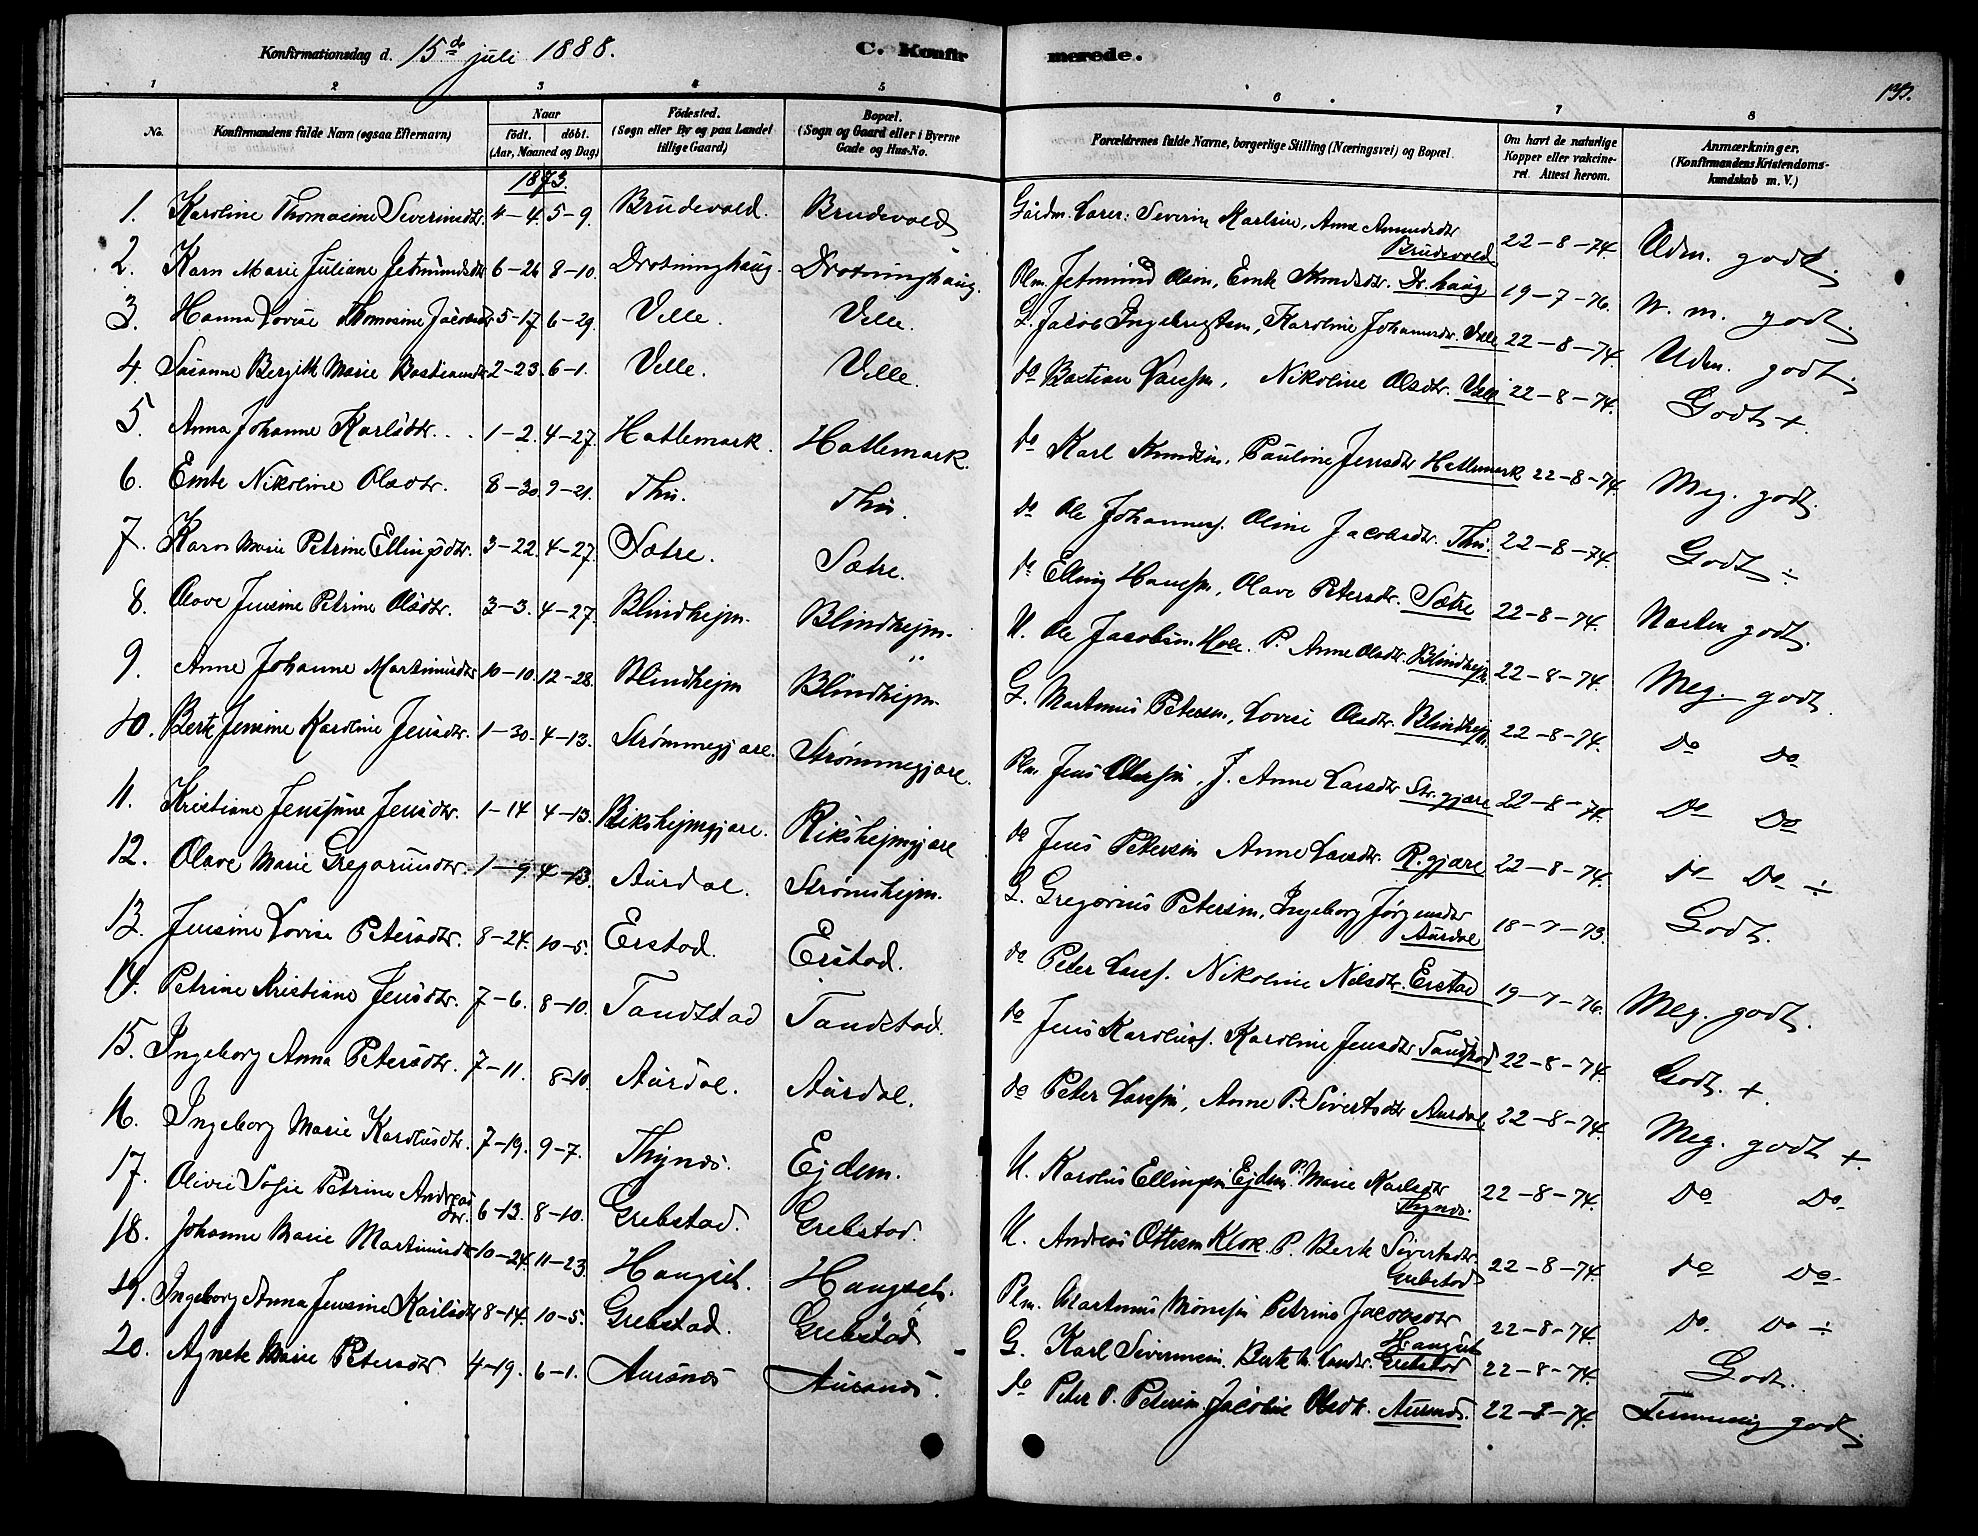 Konfirmationsdag d. 15de juli 1888.
C. Konfirmerede.
1 2 3 4 5 6 7 8
No. Konfirmandens fulde Navn (ogsaa Efternavn) Naar født. døbt. (Aar, Maaned og Dag) Fødested. (Sogn eller By og paa Landet tillige Gaard) Bopæl. (Sogn og Gaard eller i Byerne Gade og Hus-No. Forældrenes fulde Navne, borgerlige Stilling (Næringsvei) og Bopæl. Om havt de naturlige Kopper eller vakcineret. Attest herom. Anmærkninger. (Konfirmandens Kristendomskundskab m. V.)
1873.
1. Karoline Thomasine Severinsdtr. 4-4. 5-9. Brudevold. Brudevold Gårdm. Severin Karlsen, Anne Amundsdtr Brudevold 22-8-74. Udm. godt.
2. Karn Marie Juliane Jetmundsdtr 6-26 8-10. Drotninghaug. Drotninghaug. Plm. Jetmund Olsen, Emte Knudsdtr. Dr.haug 19-7-76. N. m. godt.
3. Hanna Lovise Thomasine Jacobsdtr 5-17 6-29. Velle. Velle. G. Jacob Ingebrigtsen, Karoline Johannesdtr. Velle 22-8-74. Udm. godt.
4. Susanne Bergitte Marie Bastiansdtr 2-23. 6-1. Velle. Velle. do Bastian Larssen, Nikoline Olsdtr. Velle 22-8-74. Godt +
5. Anna Johanne Karlsdtr. 1-2. 4-27. Hatlemark. Hatlemark. do Karl Knudsen, Pauline Jensdtr Hatlemark 22-8-74. Meg. godt.
6. Emte Nikoline Olsdtr. 8-30. 9-21. Thu. Thu. do Ole Johanness. Oline Jacobsdtr. Thu. 22-8-74. Godt ÷
7. Karn Marie Petrine Ellingsdtr. 3-22. 4-27. Sætre. Sætre. do Elling Hanssen, Olave Petersdtr. Sætre 22-8-74. Næsten godt.
8. Olave Jensine Petrine Olsdtr. 3-3. 4-27. Blindhejm. Blindhejm. U. Ole Jacobsen Hole. P. Anne Olsdtr. Blindhejm 22-8-74. Meg. godt.
9. Anne Johanne Martinusdtr 10-10. 12-28. Blindhejm Blindhejm. G. Martinus Petersen, Lovise Olsdtr. Blindhejm. 22-8-74. do do
10. Berte Jensine Karoline Jensdtr. 1-30. 4-13. Strømmegjære. Strømmegjære. Plm. Jens J. Anne Larsdtr Str.gjære 22-8-74. Do Do
11. Kristiane Jenssine Jensdtr. 1-14 4-13. Rikshejmgjære. Rikshejmgjære do Jens Petersen Anne Larsdtr. R.gjære 22-8-74. do Do ÷
12. Olave Marie Gregoriusdtr. 1-9. 4-13. Aurdal. Strømshejm. G. Gregorius Petersen, Ingeborg Jørgensdtr Aurdal 18-7-73. Godt.
13. Jensine Lovise Petersdtr. 8-24. 10-5. Erstad. Erstad. do Peter Larss. Nikoline Nilsdtr. Erstad 19-7-76. Meg. godt.
14. Petrine Kristiane Jensdtr. 7-6. 8-10. Tandstad Tandstad. do Jens Karoluss. Karoline Jensdtr Tandstad 22-8-74. Godt. +
15. Ingeborg Anna Petersdtr. 7-11. 8-10. Aurdal. Aurdal. do Peter Larssen, Anne P. Sivertsdtr Aurdal 22-8-74. Meg. godt +.
16. Ingeborg Marie Karolusdtr. 7-19. 9-7. Thynæs. Ejdem. U. Karolus Ellingsen Ejdem P. Marie Karlsdtr Thynæs. 22-8-74. do Do.
17. Olivie Sofie Petrine Andreasdtr. 6-13. 8-10. Grebstad. Grebstad. U. Andreas Ottesen Klok P. Berte Sivertsdtr. Grebstad 22-8-74. do do.
18. Johanne Marie Martinusdtr 10-24. 11-23. Haugset. Haugset. Plm. Martinus Petrine Jacobsdtr Haugset 22-8-74. Do. Do ÷
19. Ingeborg Anna Jensine Karlsdtr 8-14. 10-5. Grebstad. Grebstad G. Karl Sivertsen, Berte L. Grebstad 22-8-74. Godt.
20. Agnete Marie Petersdtr. 4-19. 6-1. Aursnæs Aursnæs. do Peter O. Petersen. Jacobine Olsdtr. Aursnæs. 22-8-74. Temmelig godt.